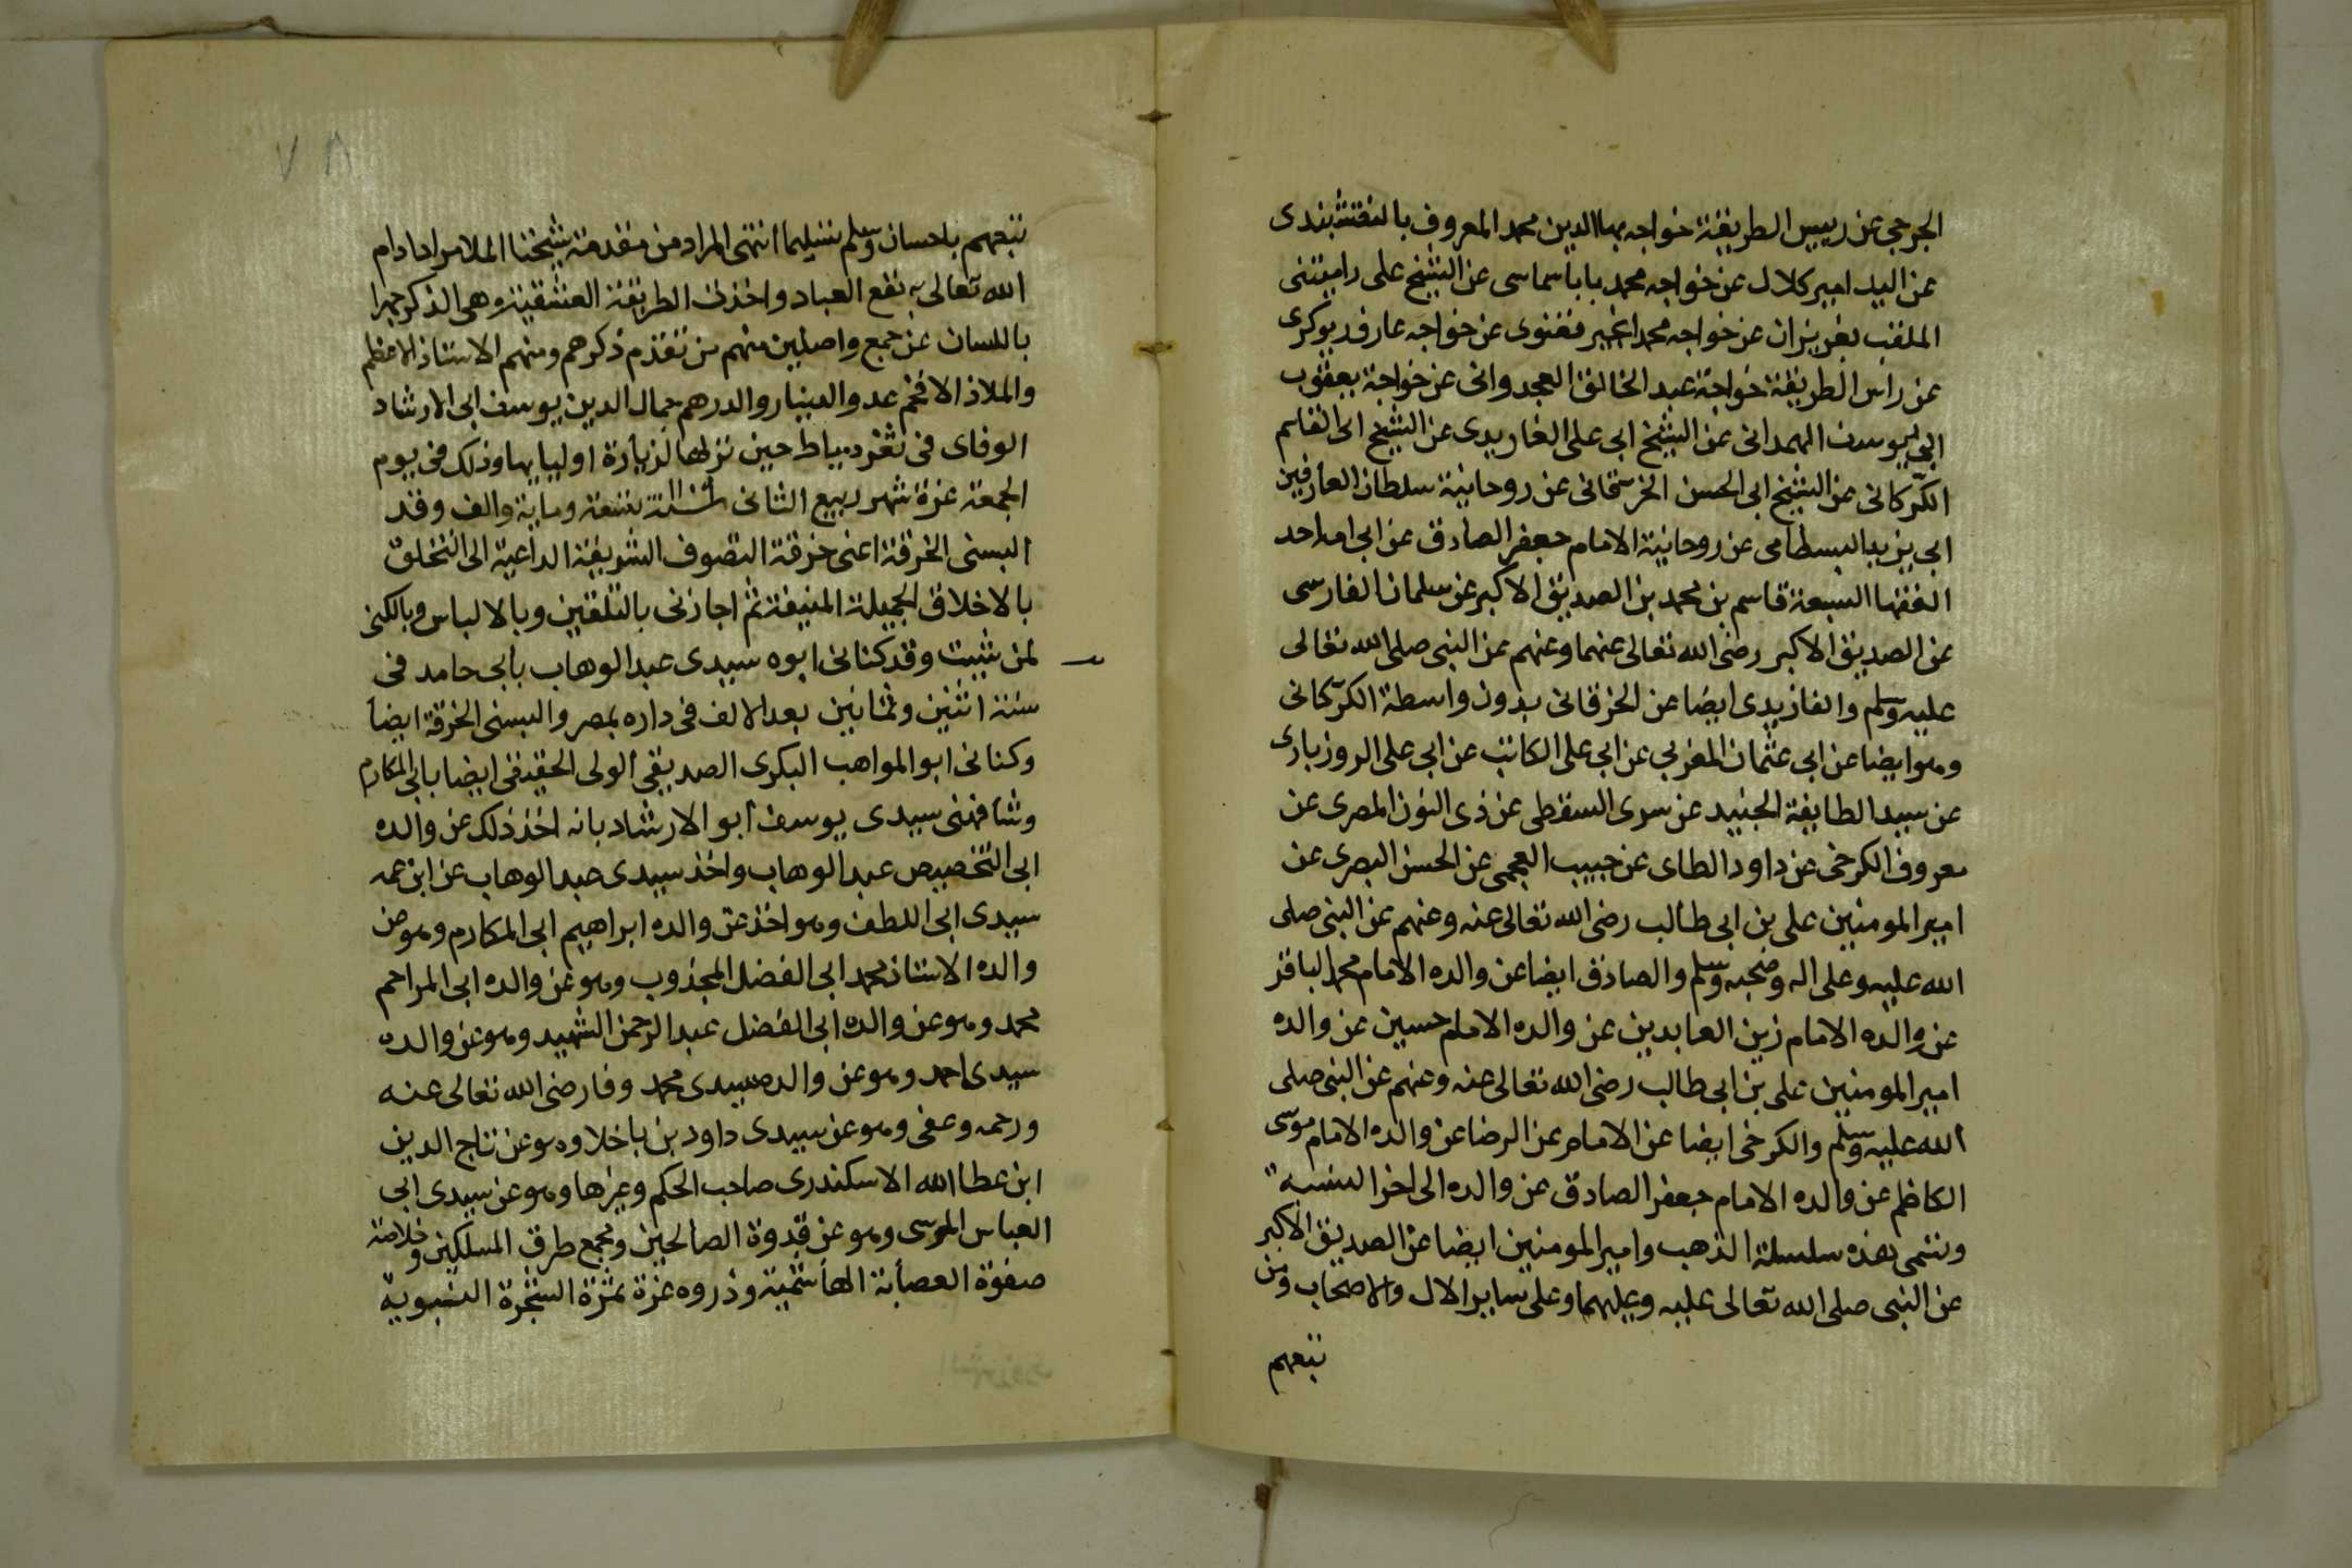 الجرجى عن رييس الطريقة خواجه بهاالدين محمد المعروف بالنقشبندى
عن اليد امير كلال عن خواجه محمد بابا سماسى عن الشيخ على راميتنى
الملقب بعزيزان عن خواجه محمد انجير فغنوى عن خواجه عارف ريوكرى
عن راس الطريقة خواجة عبد الخالق العجدوانى عن خواجة يعقوب
ابى يوسف الهمدانى عن الشيخ ابى على الفاريدى عن الشيخ ابى القاسم
الكركانى عن الشيخ ابى الحسن الخرقانى عن روحانية سلطان العارفين
ابى يزيد البسطامى عن روحانية الامام جعفر الصادق عن ابى امه احد
الفقها السبعة قاسم بن محمد بن الصديق الاكبر عن سلمان الفارسى
عن الصديق الاكبر رضى الله تعالى عنهما وعنهم عن النبى صلى الله تعالى
عليه وسلم والفازيدى ايضا عن الخرقانى بدون واسطة الكركانى
وهو ايضا عن ابى عثمان المغربى عن ابى على الكاتب عن ابى على الروزبارى
عن سيد الطايفة الجنيد عن سرى السقطى عن ذى النون المصرى عن
معروف الكرخى عن داود الطاى عن حبيب العجمى عن الحسن البصرى عن
امير المومنين على بن ابى طالب رضى الله تعالى عنه وعنهم عن النبى صلى
الله عليه وعلى اله وصحبه وسلم والصادق ايضا عن والده الامام محمد الباقر
عن والده الامام زين العابدين عن والده الامام حسين عن والده
امير المومنين على بن ابى طالب رضى الله تعالى عنه وعنهم عن النبى صلى
الله عليه وسلم والكرخى ايضا عن الامام عن الرضا عن والده الامام موسى
الكاظم عن والده الامام جعفر الصادق عن والده الى اخر النسبه
وتسمى هذه سلسلة الذهب وامير المومنين ايضا عن الصديق الاكبر
عن النبى صلى الله تعالى عليه وعليهما وعلى ساير الال والاصحاب ومن
تبعهم
تبعهم باحسان وسلم تسليما انتهى المراد من مقدمة شيخنا الملا مراد ادام
الله تعالى به نفع العباد واخذت الطريقة العشقية وهى الذكر جهرا
باللسان عن جمع واصلين منهم من تقدم ذكرهم ومنهم الاستاذ الاعظم
والملاذ الافخم عدو الدينار والدرهم جمال الدين يوسف ابى الارشاد
الوفاى فى ثغر دمياط حين نزلها لزيارة اوليايها وذلك فى يوم
الجمعة غرة شهر ربيع الثانى سنة تسعة وماية والف وقد
البسنى الخرقة اعنى خرقة التصوف الشريفة الداعية الى التخلق
بالاخلاق الجميلة المنيفة ثم اجازنى بالتلقين وبالالباس وبالكنى
لمن شيت وقد كنانى ابوه سيدى عبد الوهاب بابى حامد فى
سنة اثنين وثمانين بعد الالف فى داره بمصر والبسنى الخرقة ايضا
وكنانى ابو المواهب البكرى الصديقى الولى الحقيقى ايضا بابى المكارم
وشافهنى سيدى يوسف ابو الارشاد بانه اخذ ذلك عن والده
ابى التخصيص عبد الوهاب واخذ سيدى عبد الوهاب عن ابن عمه
سيدى ابى اللطف وهو اخذ عن والده ابراهيم ابى المكارم وهو عن
والده الاستاذ محمد ابى الفضل المجذوب وهو عن والده ابى المراحم
محمد وهو عن والده ابى الفضل عبد الرحمن الشهيد وهو عن والده
سيدى احمد وهو عن والده سيدى محمد وفا رضى الله تعالى عنه
ورحمه وعفى وهو عن سيدى داود بن باخلا وهو عن تاج الدين
ابن عطا الله الاسكندرى صاحب الحكم وغيرها وهو عن سيدى ابى
العباس المرسى وهو عن قدوة الصالحين ومجمع طرق المسلكين وخلاصة
صفوة العصابة الهاشمية وذروه عزة ثمرة الشجرة النبوية
٧٨